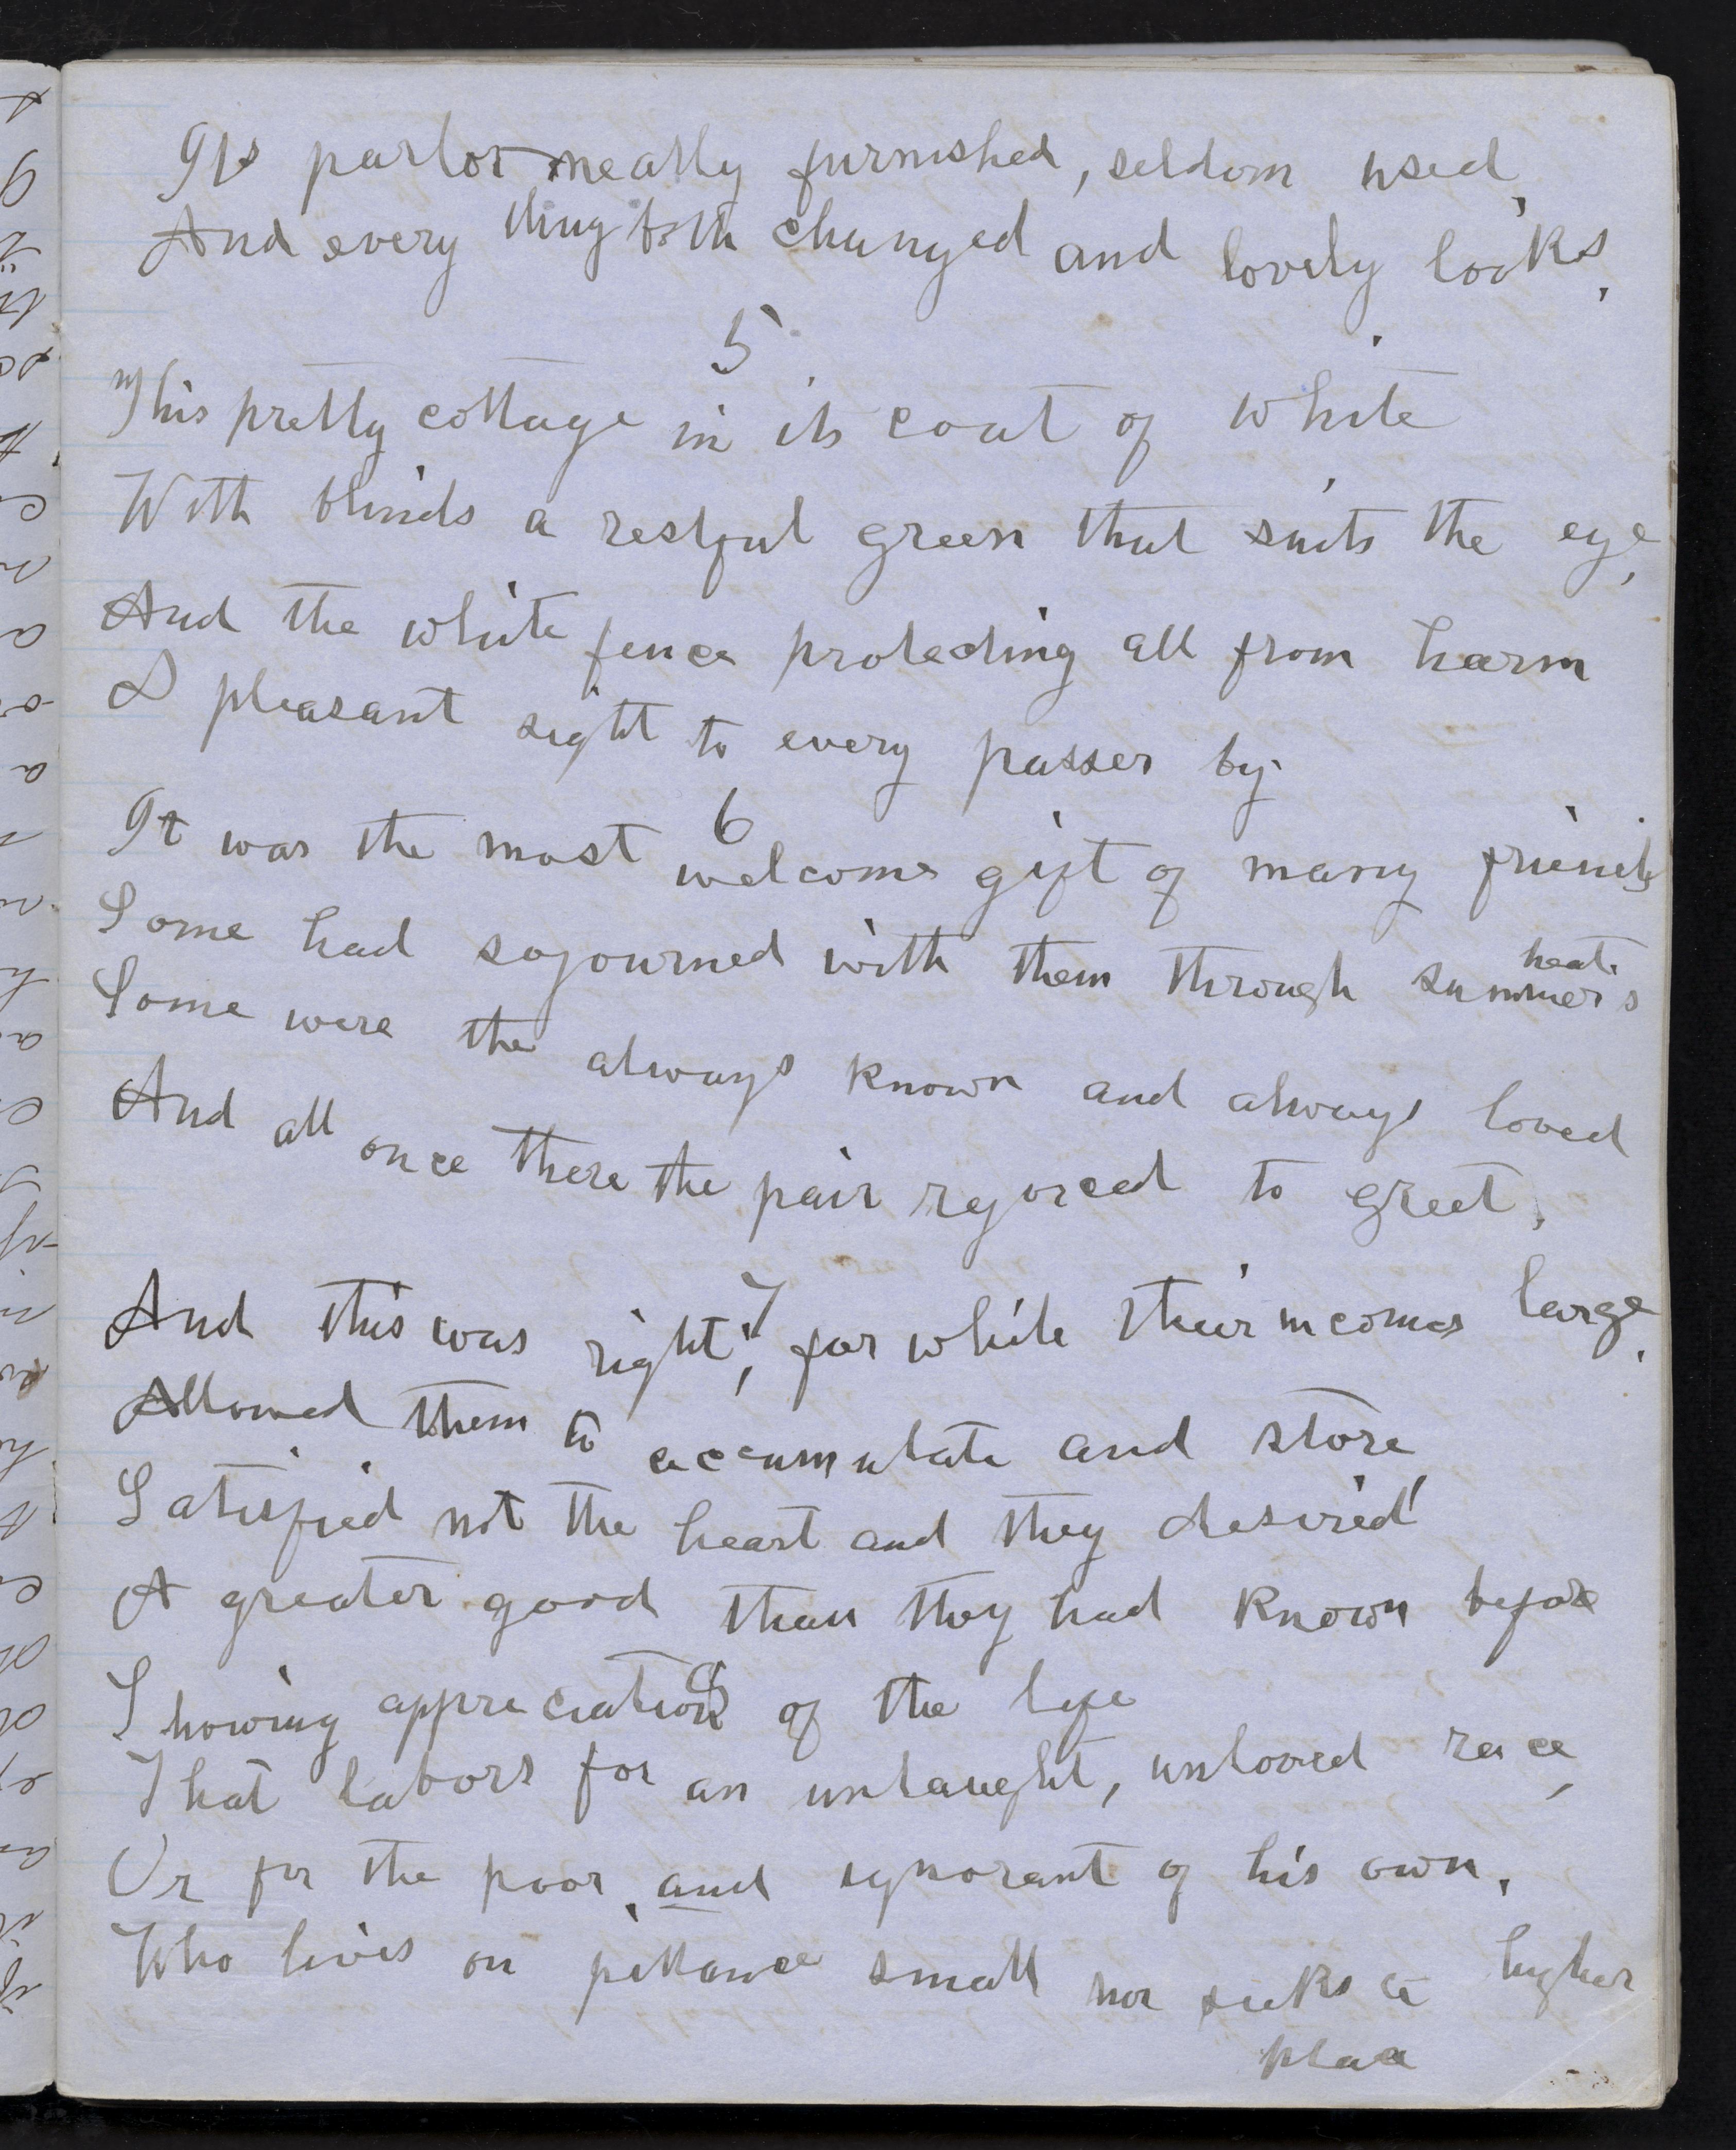 Its parlor neatly furnished, seldom used,
And every thing both changed and lovely looks,
5
This pretty cottage in its coat of white
With blinds a restful green that suits the eye,
And the white fence protecting all from harm
A pleasant sight to every passer by.
6
It was the most welcome gift of many friends
Some had sojourned with them through summer's heat.
Some were the always known and always loved
And all once there the pair rejoiced to greet,
7
And this was right; for while their incomes large,
Allowed them to accumulate and store,
Satisfied not the heart and they desired
A greater good than they had known before
8
Showing appreciation of the life
That labors for an untaught, unloved race,
Or for the poor, and ignorant of his own,
Who lives on pittance small nor seeks a higher
place